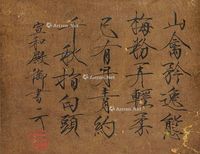 山禽矜逸態
梅粉弄輕柔
已有丹青約
千秋指白頭
宣和殿御書